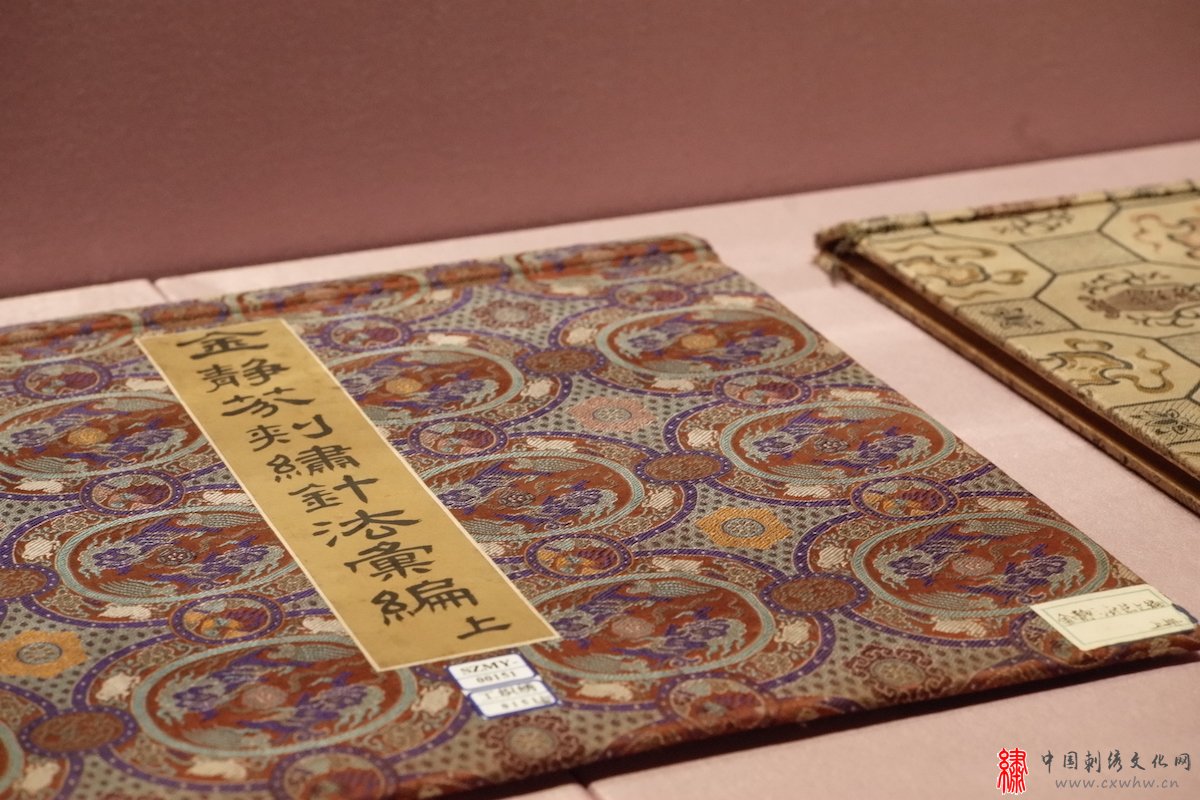 金靜芬刺繡針法彙編
上
SZMY-
00151
繡
中国刺绣文化网
www.cxwhw.cn